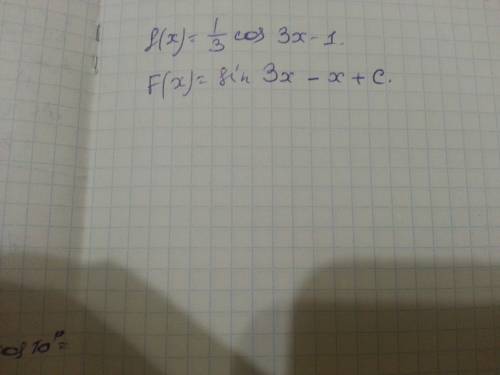 f(x)=1/3 cos 3x-1.
F(x)= sin 3x - x + C.
cos 70°=